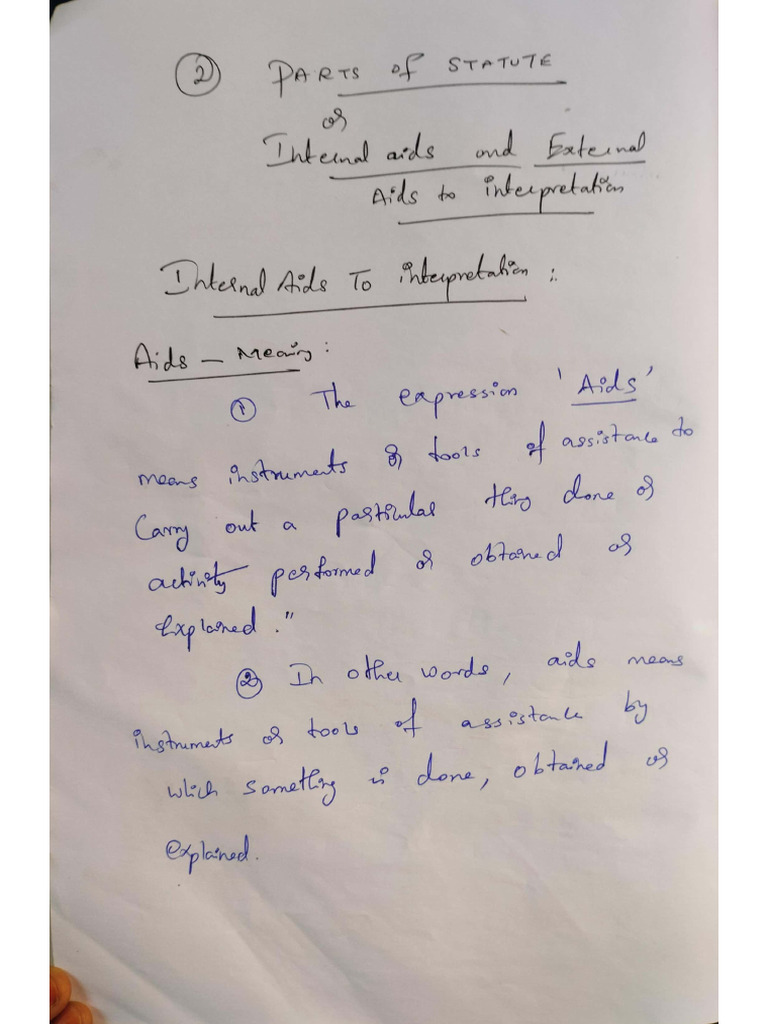 ② PARTS of STATUTE
or
Internal aids and External
Aids to interpretation
Internal Aids To interpretation :.
Aids – Meaning :
① The expression 'Aids'
means instruments or tools of assistance to
Carry out a particular thing done or
activity performed or obtained or
Explained."
② In other words, aids means
instruments or tools of assistance by
which something is done, obtained or
explained.